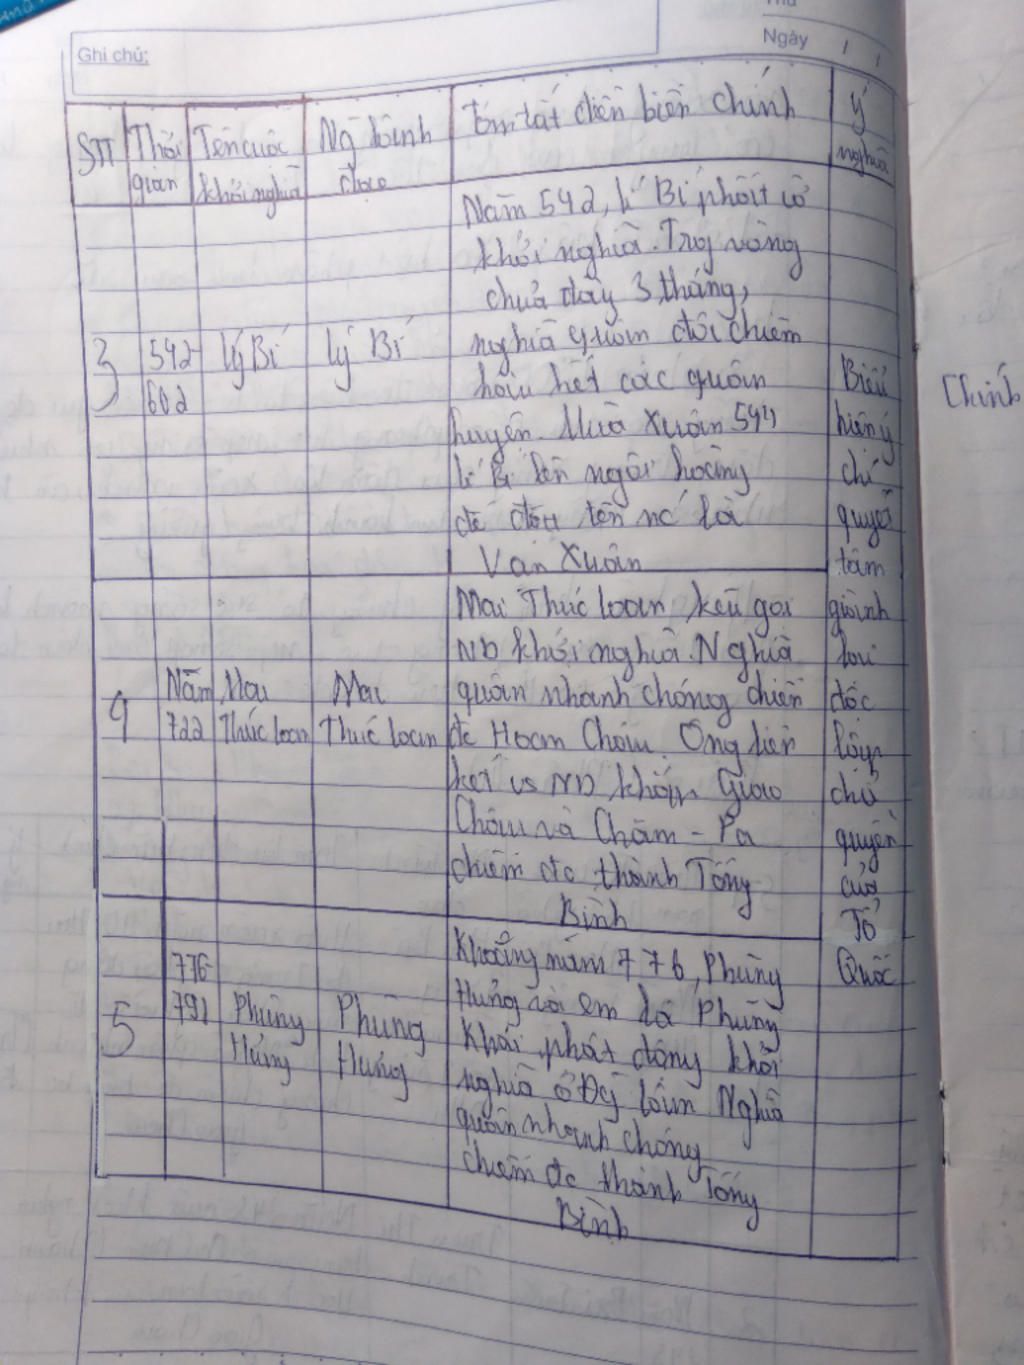 Ghi chú:
Ngày / /
STT
Thời
gian
Tên cuộc
khởi nghĩa
Ng lãnh
đạo
Tóm tắt diễn biến chính
ý
nghĩa
3
542-
602
Lý Bí
Lý Bí
Năm 542, lí Bí phất cờ
khởi nghĩa. Trg vòng
chưa đầy 3 tháng,
nghĩa quân đã chiếm
hầu hết các quận
huyện. Mùa Xuân 544
lí Bí lên ngôi hoàng
đế đặt tên nc là
Vạn Xuân
4
Năm
722
Mai
Thúc loan
Mai
Thúc loan
Mai Thúc loan kêu gọi
ND khởi nghĩa. Nghĩa
quân nhanh chóng chiếm
đc Hoan Châu. Ông liên
kết vs ND khắp Giao
Châu và Chăm - Pa
chiếm đc thành Tống
Bình
5
776-
791
Phùng
Hưng
Phùng
Hưng
Khoảng năm 776, Phùng
Hưng và em là Phùng
Khải phát động khởi
nghĩa ở Đg lâm Nghĩa
quân nhanh chóng
chiếm đc thành Tống
Bình
Biểu
hiện ý
chí
quyết
tâm
giành
lại
độc
lập
chủ
quyền
của
Tổ
Quốc
Chính